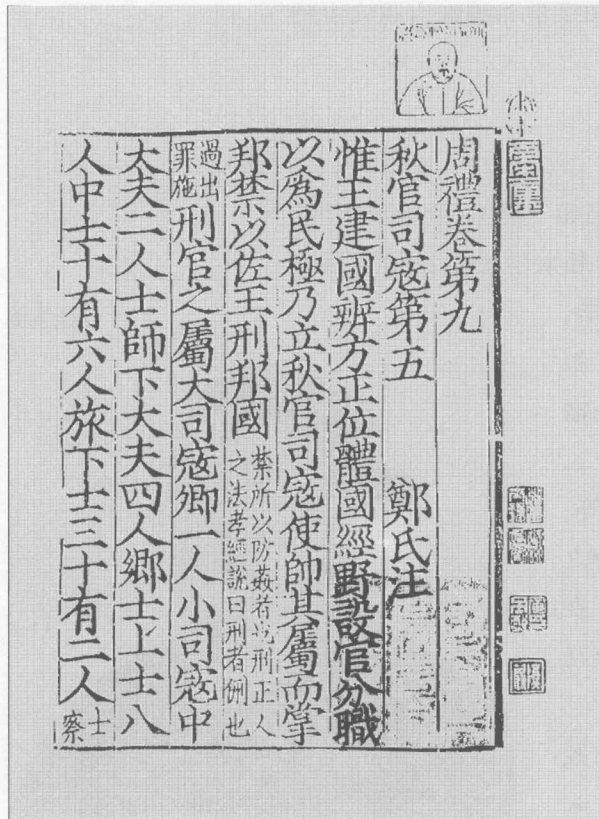 周禮卷第九
秋官司寇第五　鄭氏注
惟王建國辨方正位體國經野設官分職
以爲民極乃立秋官司寇使帥其屬而掌
邦禁以佐王刑邦國禁所以防姦者也刑正人
之法孝經說曰刑者侀也
過出
罪施刑官之屬大司寇卿一人小司寇中
大夫二人士師下大夫四人鄉士上士八
人中士十有六人旅下士三十有二人士
察